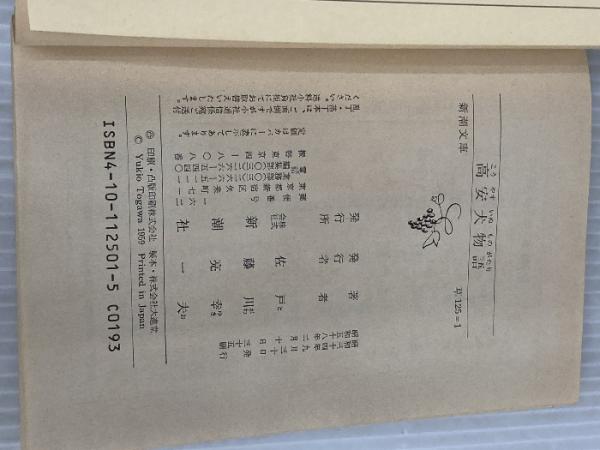 新潮文庫
高安犬物語
こう やす いぬ もの がたり
草125=1
昭和三十四年二月二十日発行
昭和五十八年九月三十日三十五刷
著者 戸川幸夫
と がわ ゆき お
発行者 佐藤亮一
発行所 会社 株式 新潮社
郵便番号 一六二
東京都新宿区矢来町七一
定価はカバーに表示してあります。
乱丁・落丁本は、ご面倒ですが小社通信係宛ご送付
ください。送料小社負担にてお取替えいたします。
印刷・凸版印刷株式会社 製本・株式会社大進堂
© Yukio Togawa 1959 Printed in Japan
ISBN4-10-112501-5 C0193